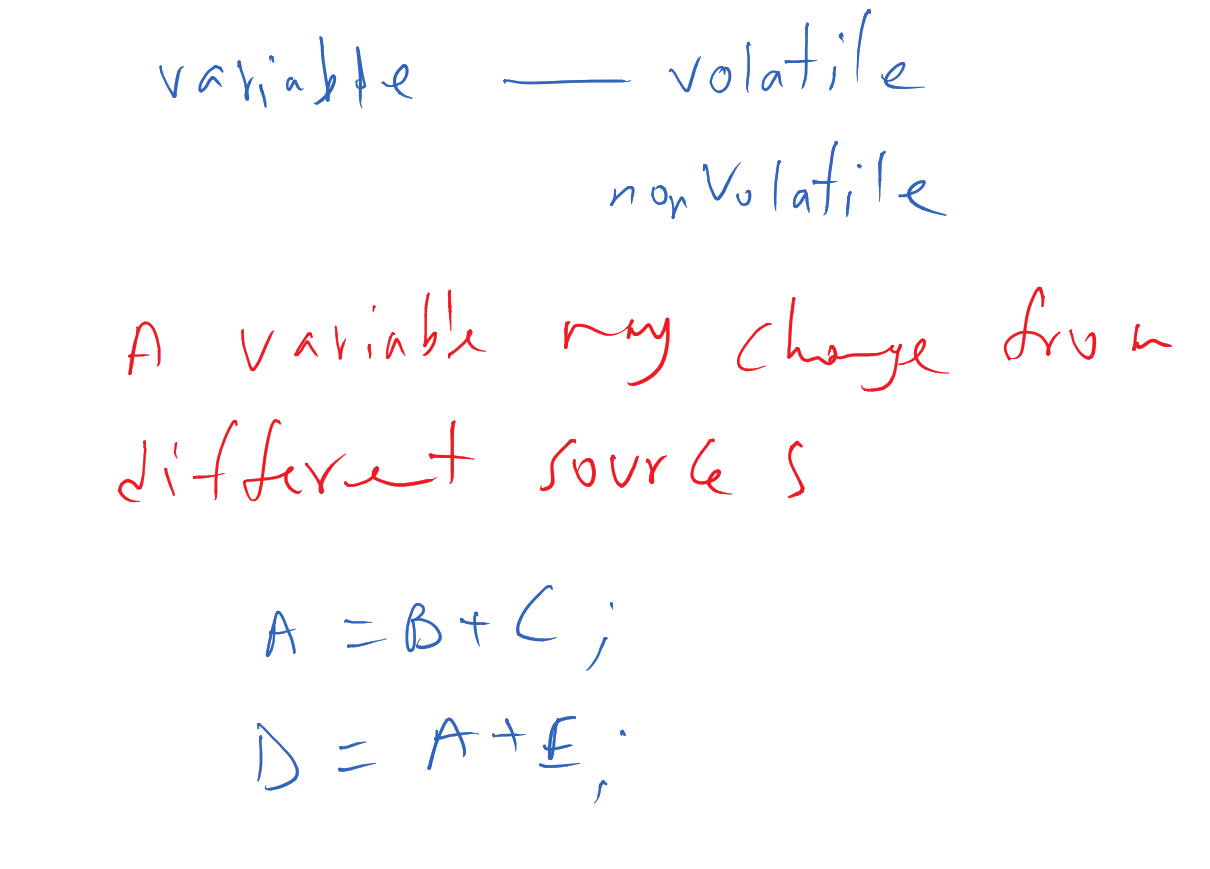 variable — volatile
nonVolatile
A variable may change from
different sources
A = B + C ;
D = A + E ;